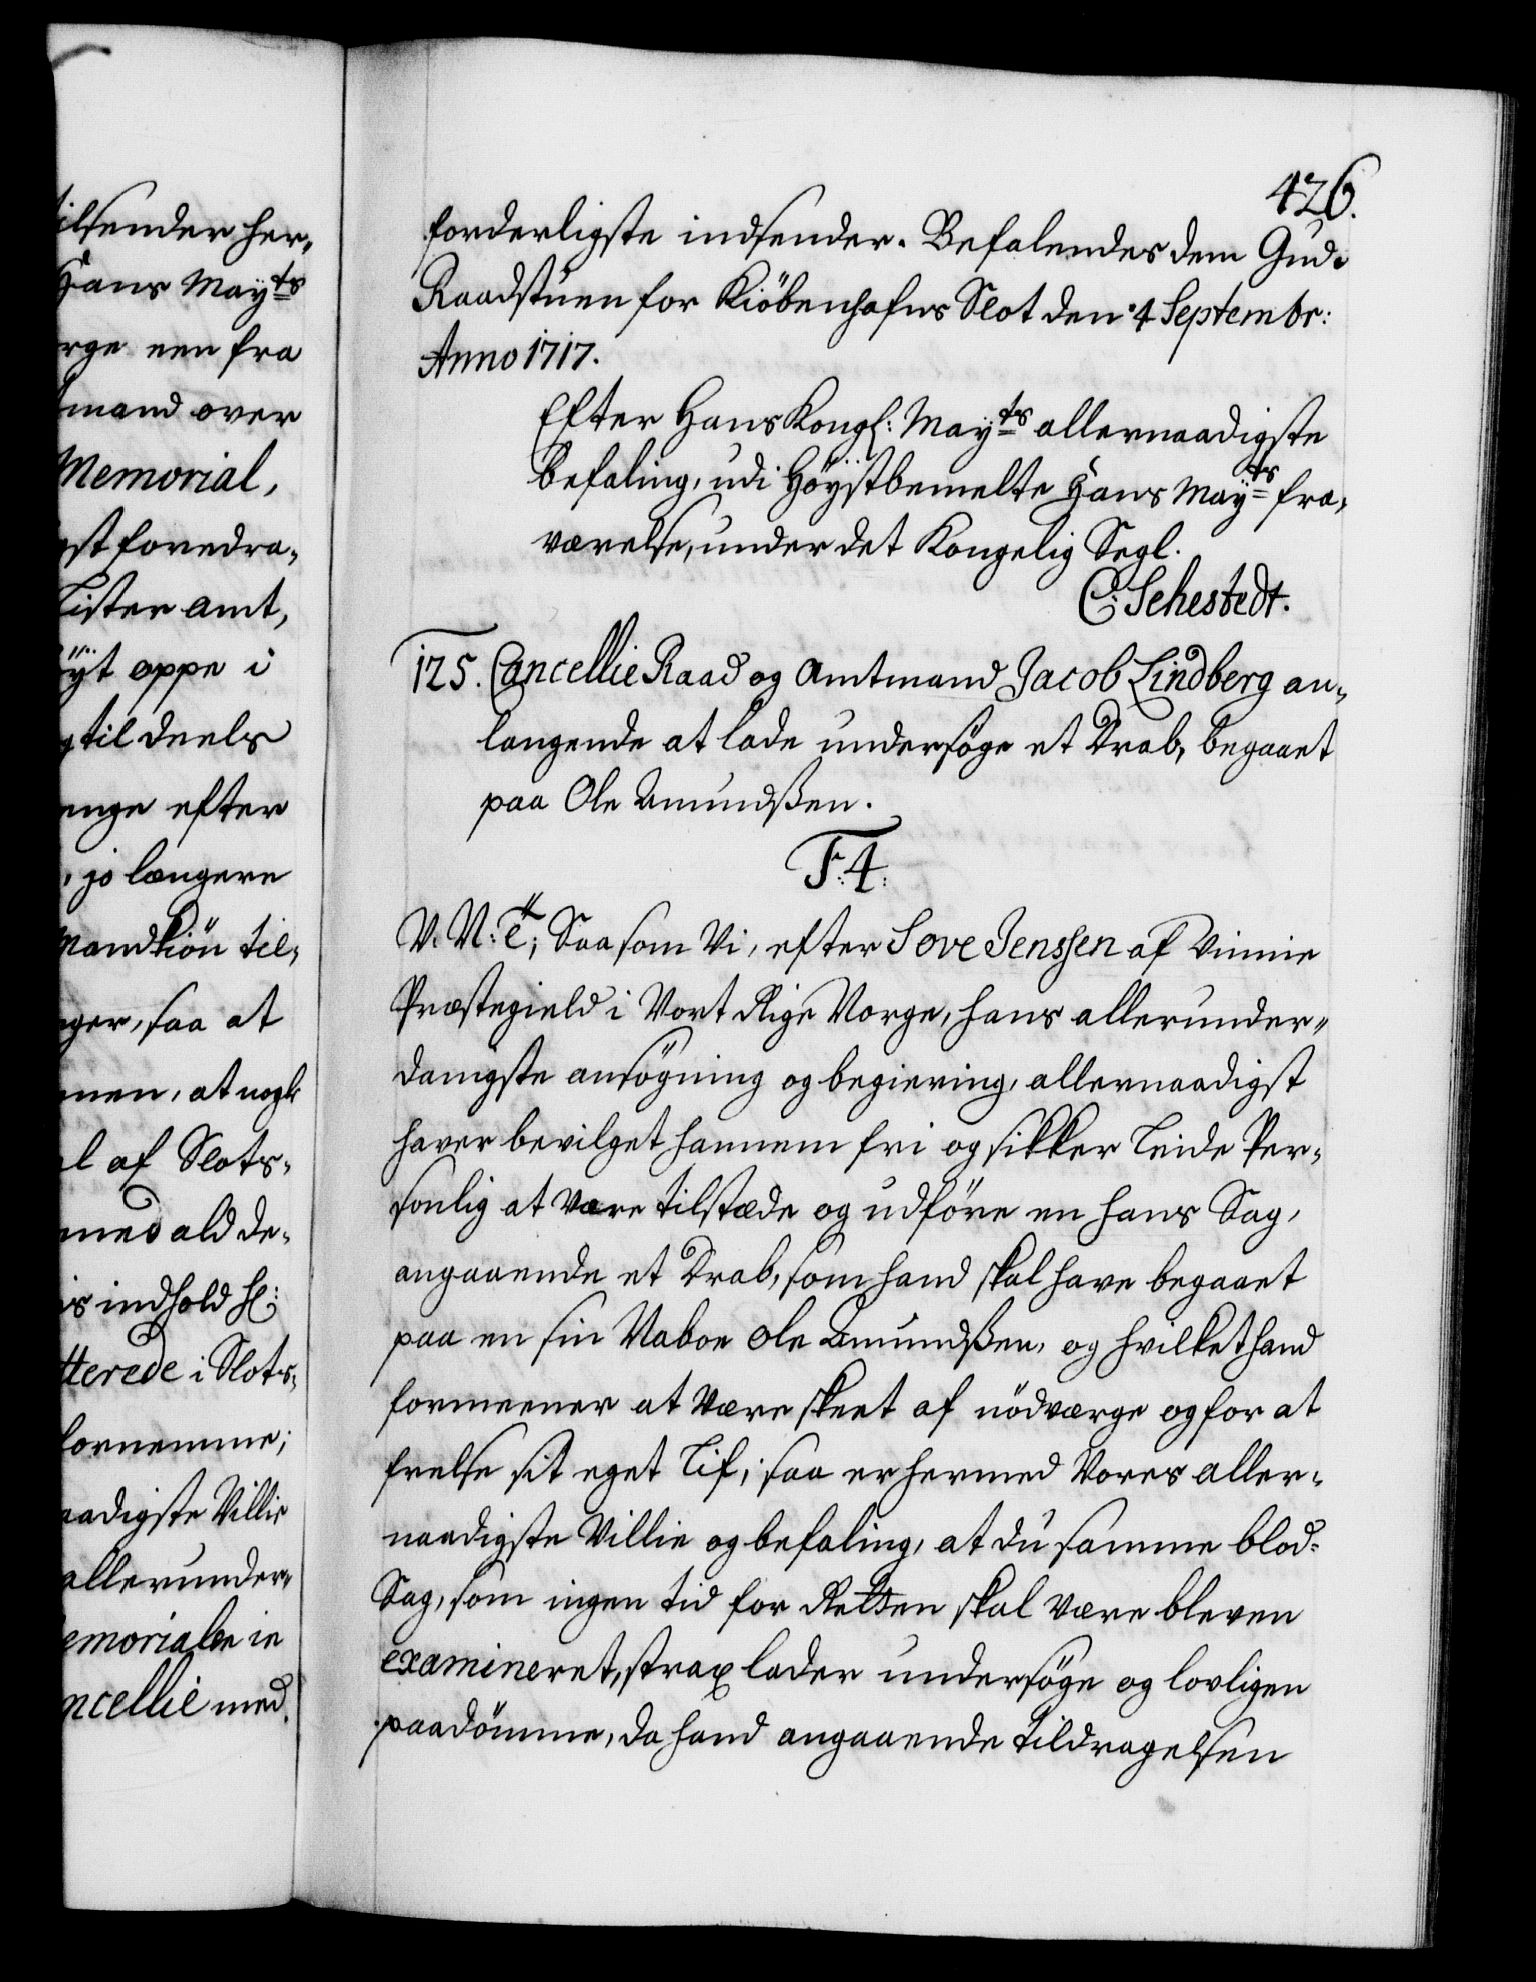 ilsender her-
Hans Mayts
rge een fra
mand over
Memorial,
st foredra-
Lister amt,
öyt oppe i
til deels
enge efter
, jo længere
Mandkiön til-
ger, saa at
men, at nogle
l af Slots-
med ald de-
is indhold H:
tterede i Slots-
fornemme;
aadigste Villie
allerunder-
emorialen in
ncellie med.
426.
forderligste indsender. Befalendes dem Gud.
Raadstuen for Kiöbenhafns Slot den 4 Septembr:
Anno 1717.
Efter Hans Kongl: Mayts allernaadigste
befaling, udi Höystbemelte Hans Mayts fra-
værelse, under det Kongelig Segl.
C: Sehestedt.
125. Cancellie Raad og Amtmand Jacob Lindberg an-
langende at lade undersöge et Drab, begaaet
paa Ole Amundßen.
F: 4:
V. N: C; Saasom Vi, efter Sove Jenssen af Vinnie
Præstegield i Vort Rige Norge, hans allerunder-
danigste ansögning og begiering, allernaadigst
haver bevilget hannem fri og sikker Leide Per-
sonlig at være tilstæde og udföre en hans Sag,
angaaende et Drab, som hand skal have begaaet
paa en sin Naboe Ole Amundßen, og hvilket hand
formeener at være skeet af nödværge og for at
frelse sit eget Lif; saa er hermed Vores aller-
naadigste Villie og befaling, at du samme blod-
Sag, som ingen tid for Retten skal være bleven
examineret, strax lader undersöge og lovligen
paadömme, da hand angaaende tildragelsen